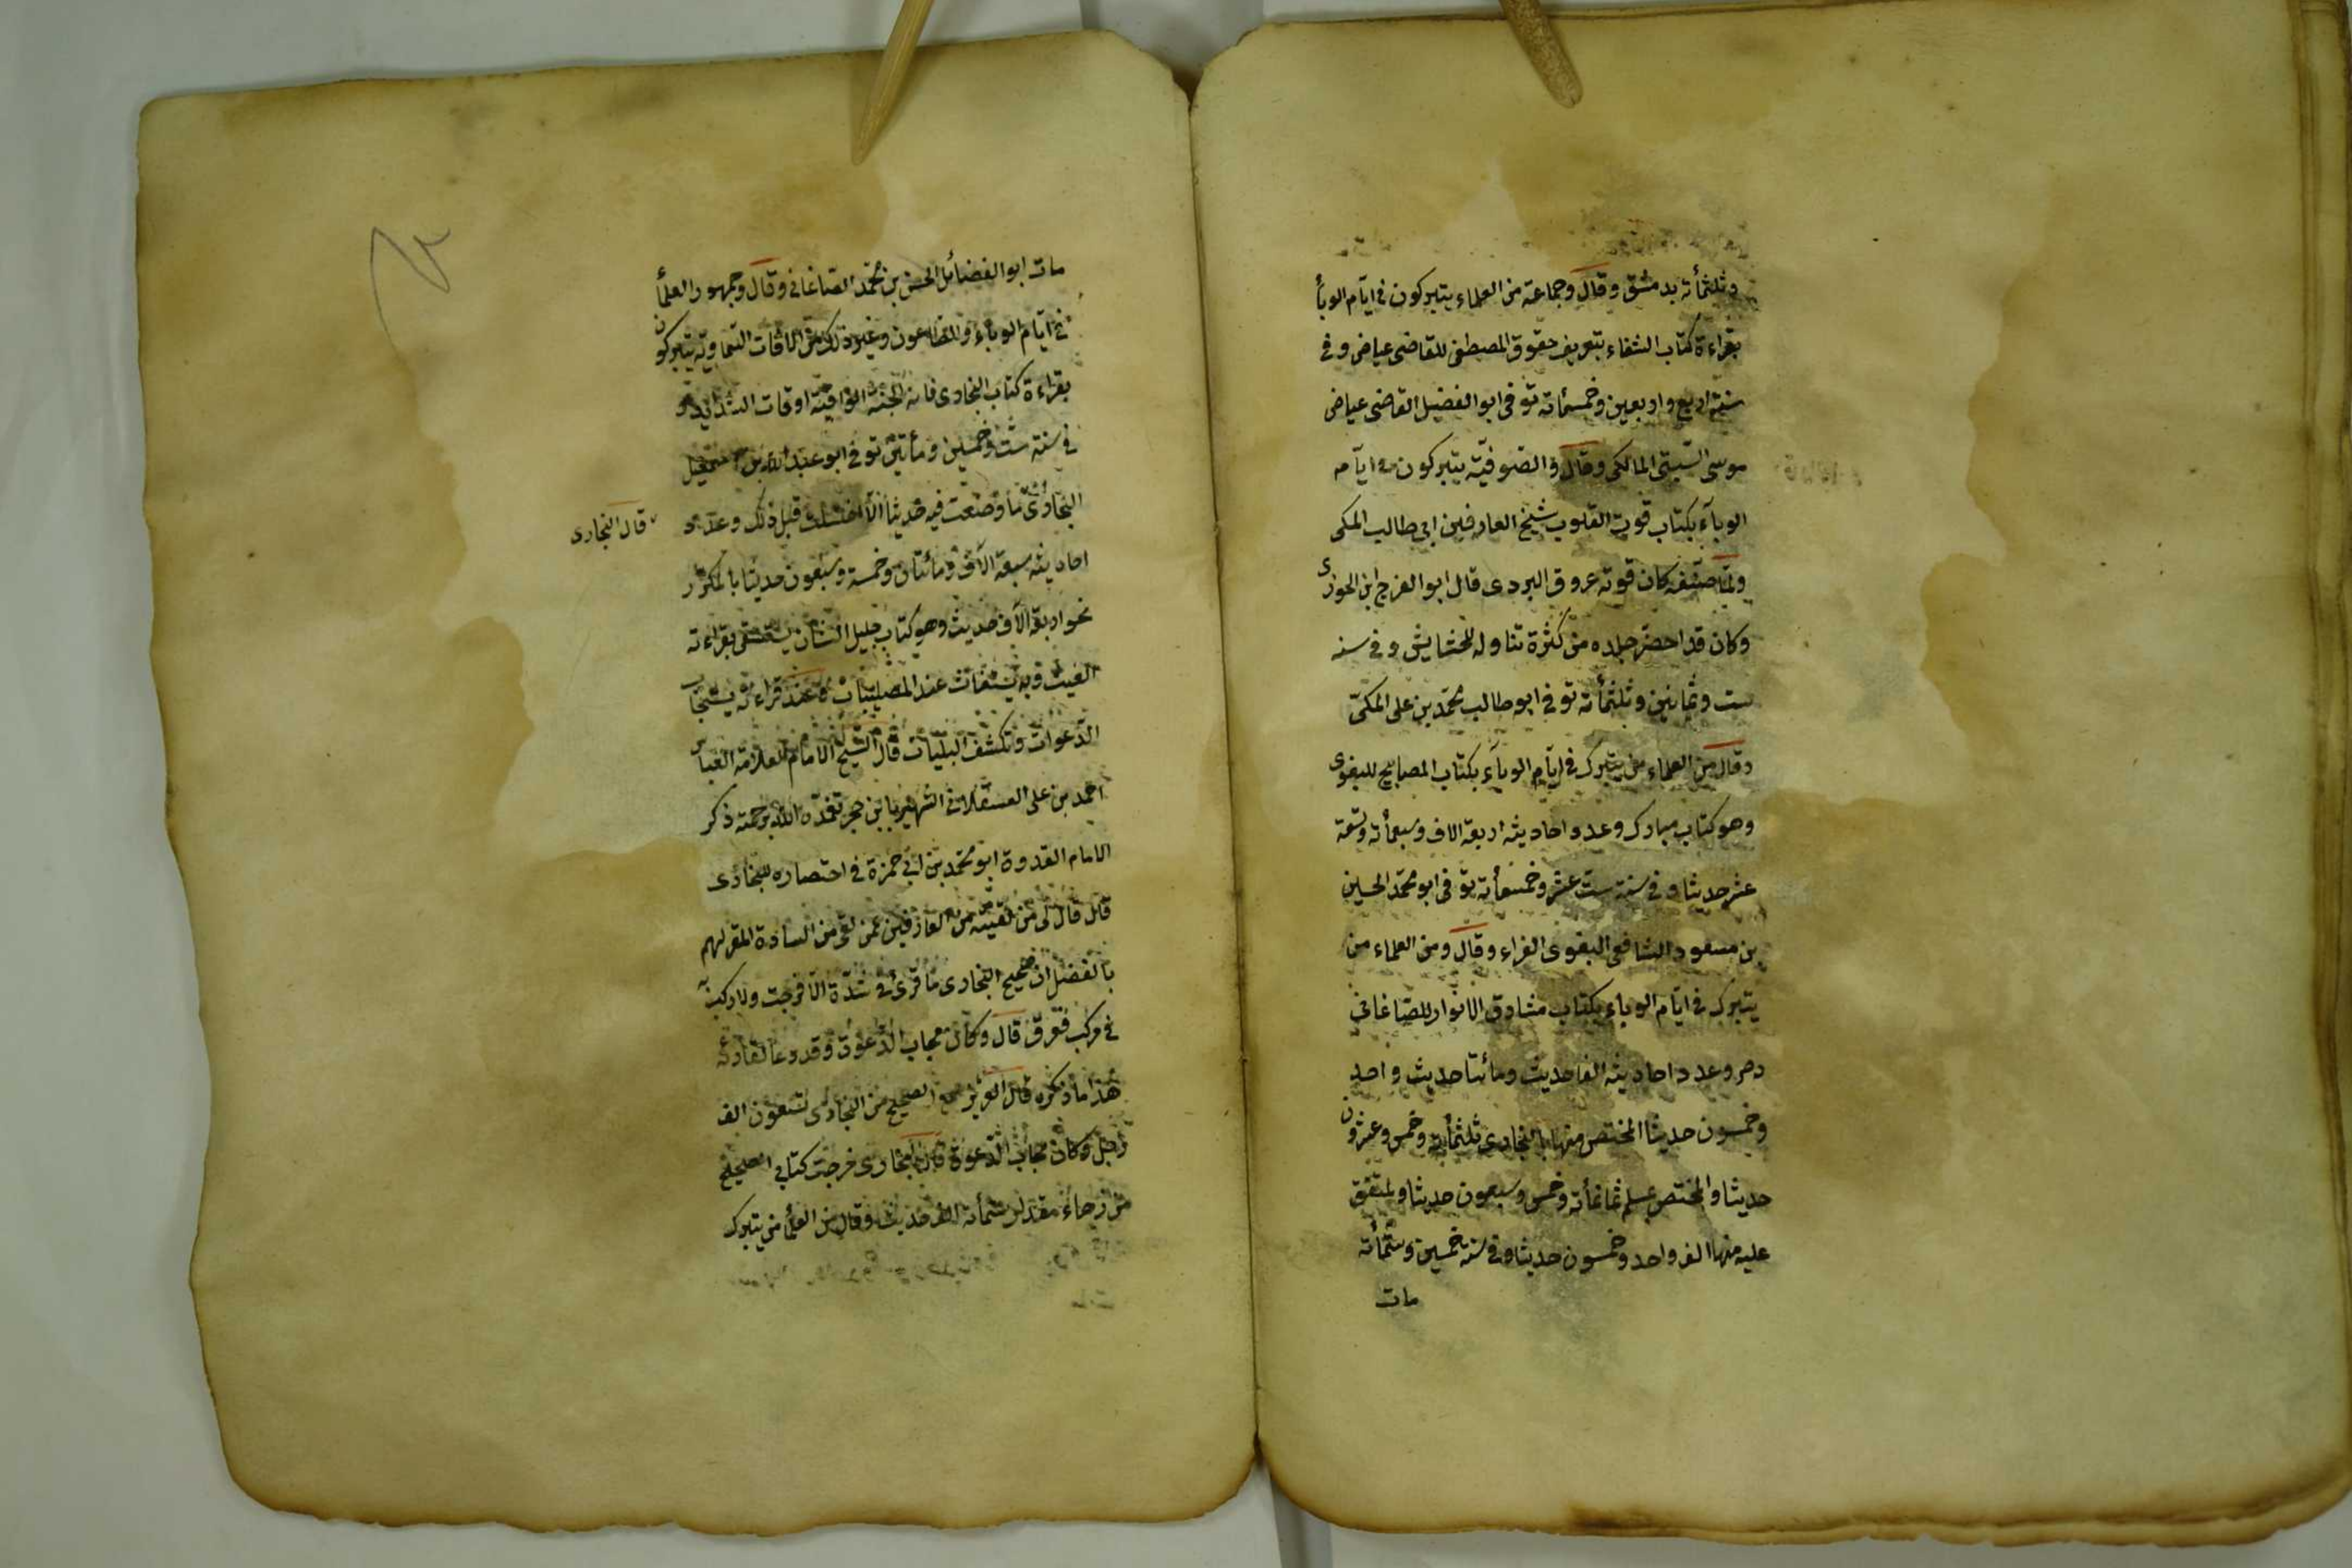 وثلثمأته بدمشق وقال وجماعة من العلماء يتبركون فى ايام الوبأ
بقراءة كتاب الشفاء بتعريف حقوق المصطفى للقاضى عياض وفى
سنة اربع واربعين وخمسمأته توفى ابو الفضيل القاضى عياض
موسى السبتى المالكى وقال والصوفية يتبركون ايام
الوبآء بكتاب قوت القلوب شيخ العارفين ابى طالب المكى
ولما صنفه كان قوته عروق البردى قال ابو الفرج ابن الجوزى
وكان قد احضر جلده من كثرة تناوله للحشايش وفى سنه
ست وثمانين وثلثمأته توفى ابو طالب محمد بن على المكى
وقال من العلماء من يتبرك فى ايام الوبآء بكتاب المصابيح للبغوى
وهو كتاب مبارك وعدد احاديثه اربعة الاف وسبعمأته وتسعة
عشر حديثا وفى سنة ست عشر وخمسمأته توفى ابو محمد الحسين
بن مسعود الشافعى البغوى الفراء وقال ومن العلماء من
يتبرك فى ايام الوباء بكتاب مشارق الانوار للصاغانى
وعدد احاديثه الفا حديث ومائتا حديث واحد
وخمسون حديثا المختص منها بالبخارى ثلثمأته وخمس وعشرون
حديثا والمختص بمسلم ثمانمأته وخمس وسبعون حديثا والمتفق
عليه منها الف واحد وخمسون حديثا وفى سنة خمسين وستمأته
مات
مات ابو الفضائل الحسن بن محمد الصاغانى وقال وجمهور العلمأ
فى ايام الوباء والطاعون وغير ذلك من الافات السماوية يتبركون
بقراءة كتاب البخارى فانه الجنة الواقية اوقات الشدايد و
فى سنة ست وخمسين ومأتين توفى ابو عبد الله بن اسمعيل
البخارى ما وضعت فيه حديثا الا اغتسلت قبل ذلك وعدد
قال البخارى
احاديثه سبعة الاف ومائتان وخمسة وسبعون حديثا بالمكرر
نحو اربعة الاف حديث وهو كتاب جليل الشان يستسقى بقراءته
الغيث وبه يستغاث عند المصيبات وعند قراءته يستجاب
الدعوات وتكشف البليات قال الشيخ الامام العلامة العباس
احمد بن على العسقلانى الشهير بابن حجر تغمده الله برحمته ذكر
الامام القدوة ابو محمد بن ابى حمزة فى اختصاره للبخارى
قال قال لى من لقيته من العارفين عمن لقى من السادة المقر لهم
بالفضل ان صحيح البخارى ما قرئ فى شدة الا فرجت ولا ركب به
فى مركب فغرق قال وكان مجاب الدعوة وقد دعا لقارئه
هذا ما ذكره قال سمع الصحيح من البخارى تسعون الف
رجل وكان مجاب الدعوة قال البخارى خرجت كتابى الصحيح
من زهاء مقدار ستمأته الف حديث وقال من العلمأ من يتبرك